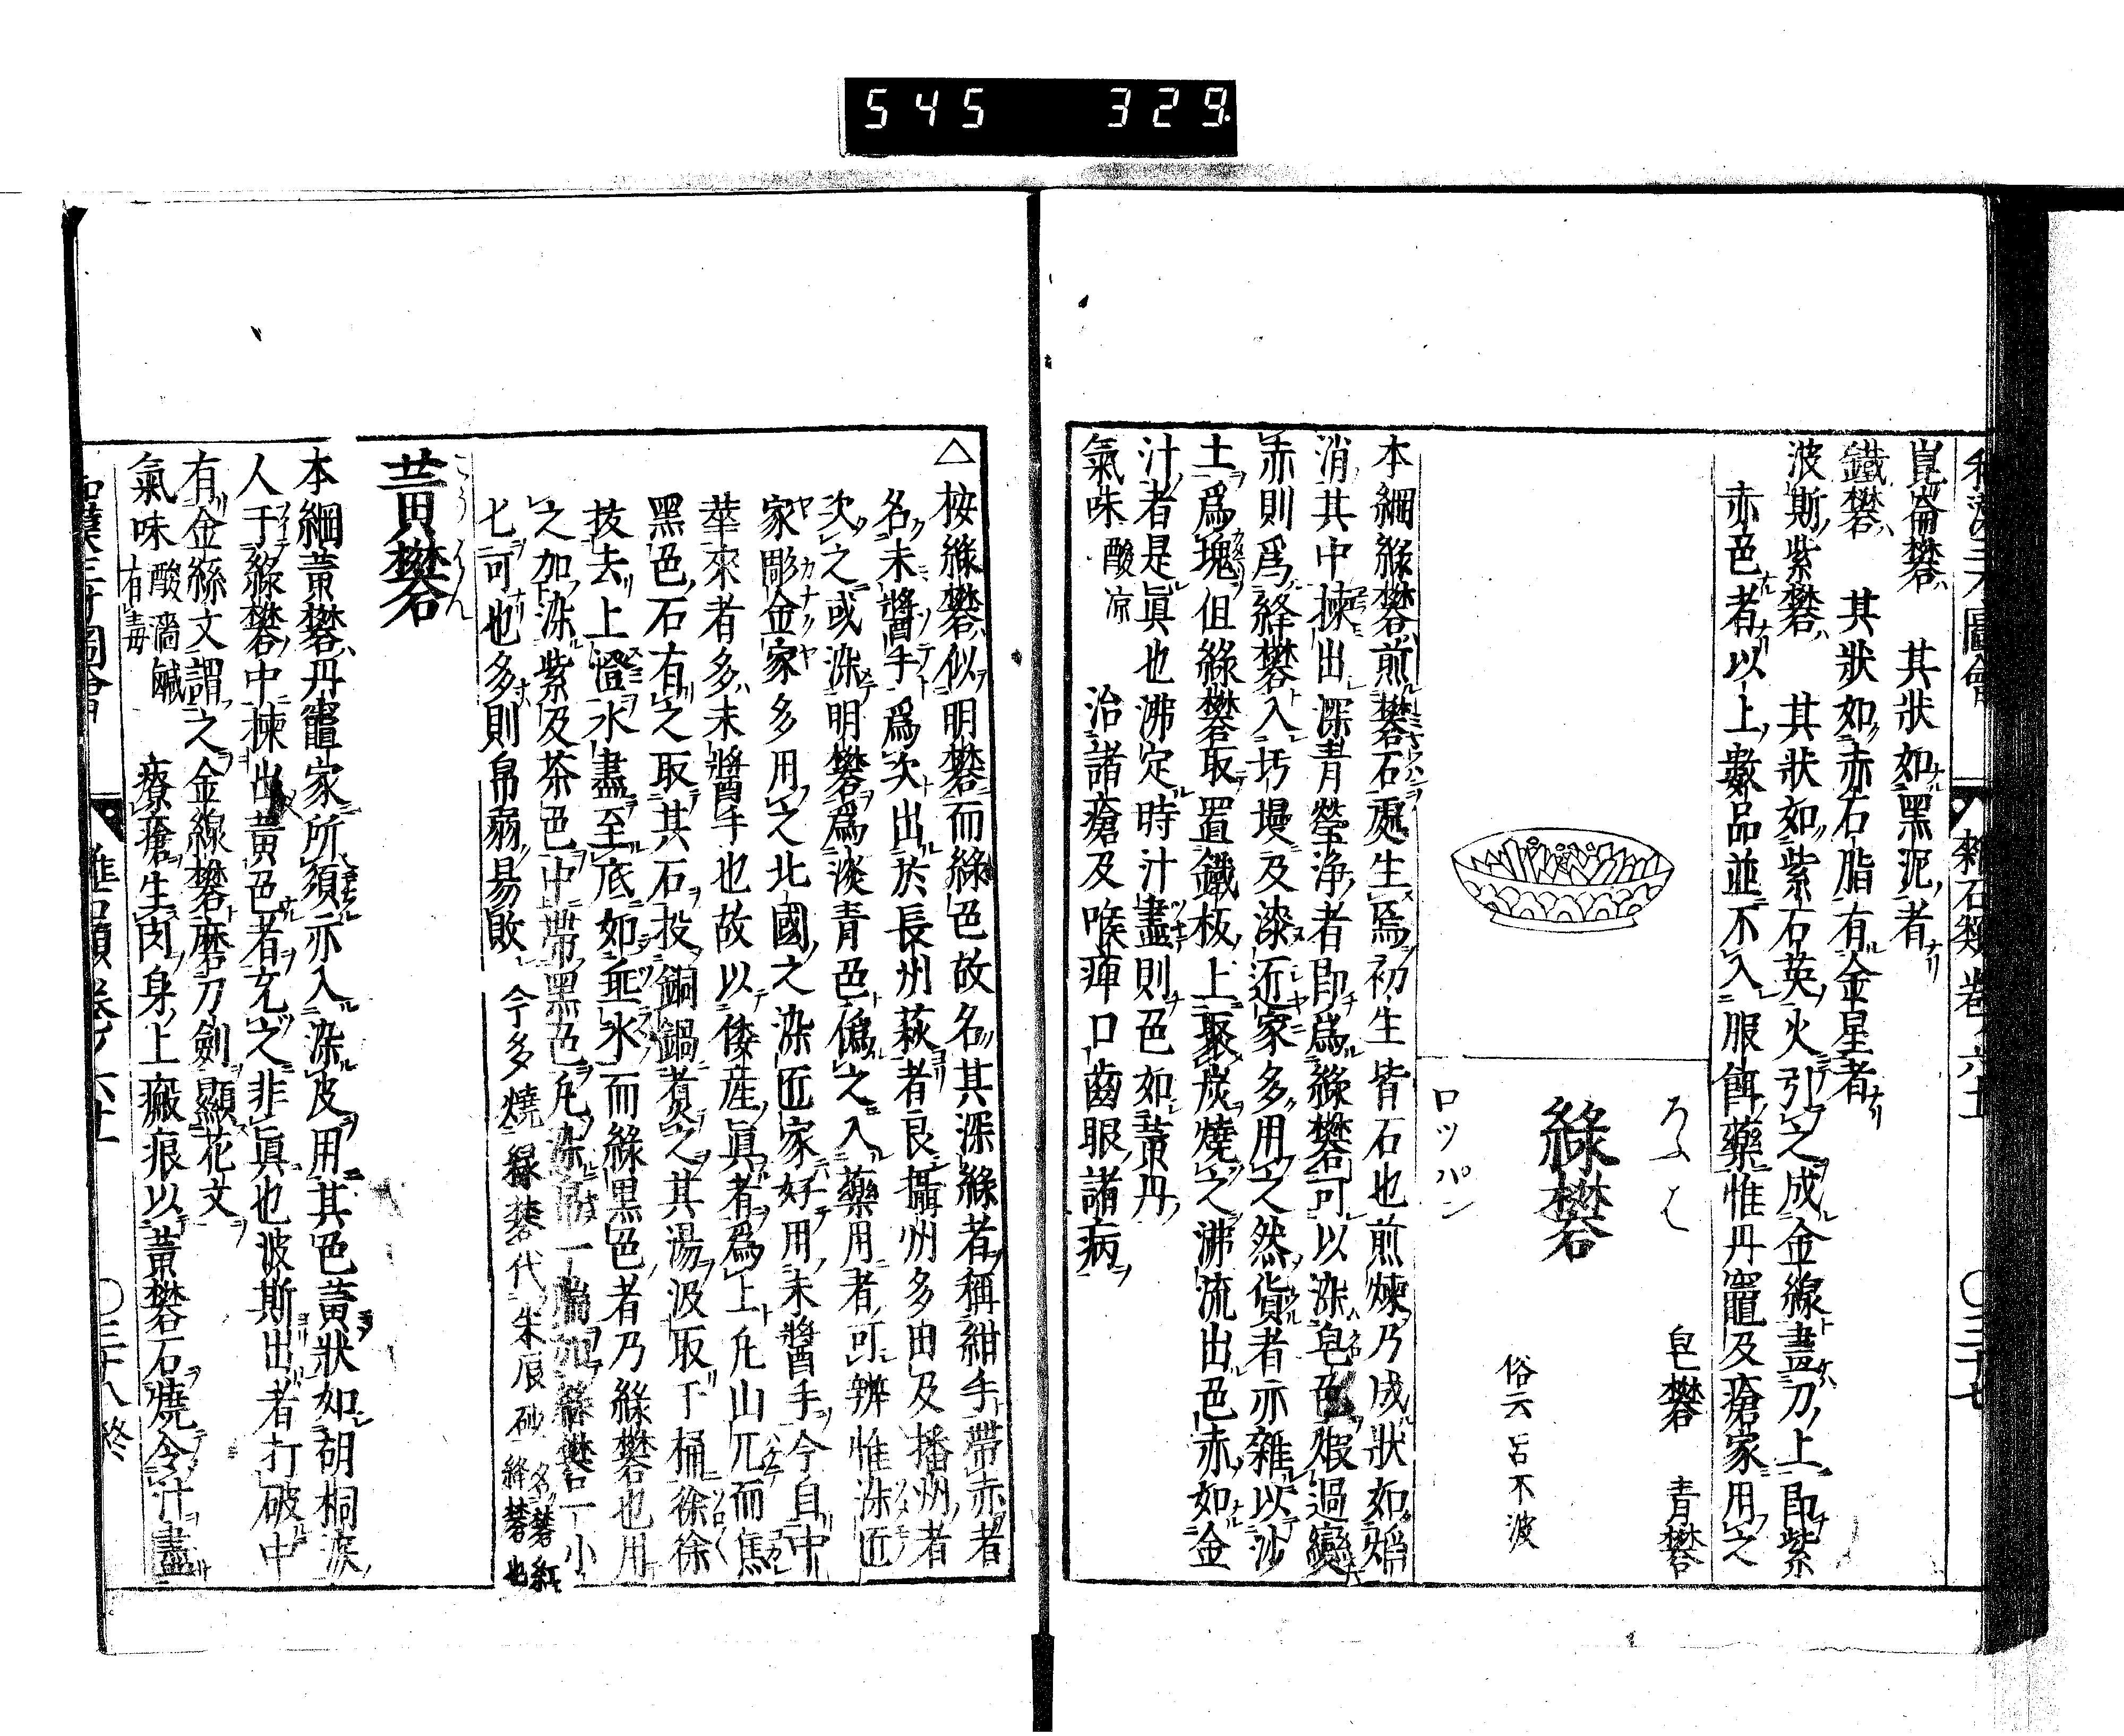 545 329
崑崙礬 其狀如黑泥者
鐵礬 其狀如赤石脂有金星者
波斯紫礬 其狀如紫石英火引之成金線畫刀上即紫
赤色者以上數品並不入服餌藥惟丹竈及瘡家用之
緑礬
皂礬 青礬
俗云呂不波
ロツパン
本綱緑礬煎礬石處生焉初生皆石也煎煉乃成狀如焔
消其中揀出深青瑩浄者即爲緑礬可以染皂色煆過變
赤則爲絳礬入圬墁及漆近家多用之然貨者亦雜以沙
土爲塊但緑礬取置鐵板上聚炭燒之沸流出色赤如金
汁者是眞也沸定時汁盡則色如黄丹
氣味 酸涼 治諸瘡及喉痺口齒眼諸病
△按緑礬似明礬而緑色故名其深緑者稱紺手帶赤者
名未醬手爲次出於長州萩者良攝州多田及播州者
次之或染明礬爲淡青色僞之入藥用者可辨惟染匠
家彫金家多用之北國之染匠家好用未醬手今自中
華來者多未醬手也故以倭産眞者爲上凡山兀而焦
黑色石有之取其石投銅鍋煮之其湯汲取于桶徐徐
拔去上澄水盡至底如垂水而緑黑色者乃緑礬也用
之加染紫及茶色中帶黑色凡染帛一端加緑礬一小
七可也多則帛弱易敗 今多燒緑礬代朱辰砂 名礬紅絳礬也
黄礬
本綱黄礬丹竈家所須亦入染皮用其色黄狀如胡桐涙
人于緑礬中揀出黄色者充之非眞也波斯出者打破中
有金絲文謂之金線礬磨刀劍顯花文
氣味 酸濇鹹有毒 療瘡生肉身上瘢痕以黄礬石燒令汁盡